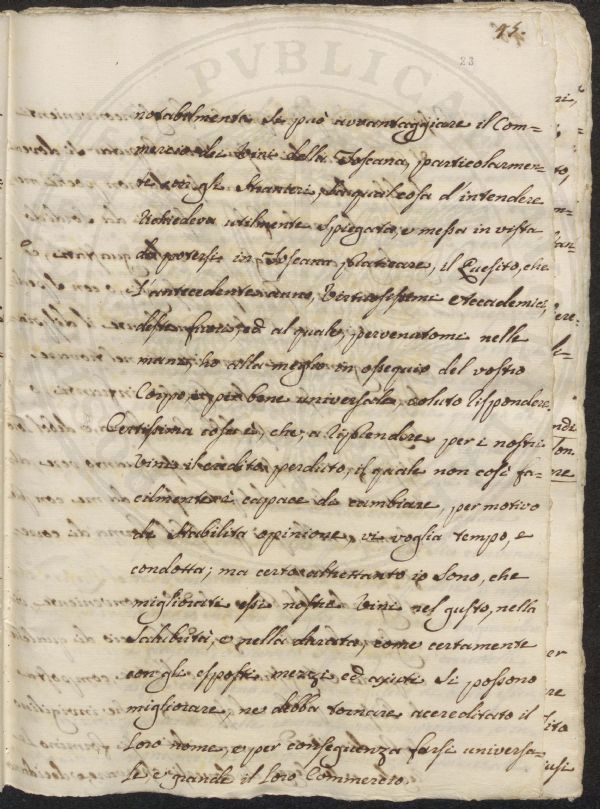 45.
23
notabilmente si può avvantaggiare il Com=
mercio di Vini della Toscana, particolarmen=
te con gli Stranieri, la qual cosa d'intendere
richiedeva utilmente spiegata, e messa in vista
da potersi in Toscana praticare, il Quesito, che
l'antecedente anno, Virtuosissimi Accademici,
deste fuori, ed al quale, pervenutomi nelle
mani, ho alla meglio in ossequio del vostro
Corpo, e per bene universale, voluto rispondere.
Certissima cosa è, che, a riprendere per i nostri
Vini il credito perduto, il quale non così fa=
cilmente è capace di cambiare, per motivo
di stabilita opinione, vi voglia tempo, e
condotta; ma certo altrettanto io sono, che
migliorati essi nostri Vini nel gusto, nella
salubrità, e nella durata, come certamente
con gli esposti mezzi ed ajuti si possono
migliorare, ne debba tornare accreditato il
loro nome, e per conseguenza farsi universa=
le e grande il loro Commercio.
PVBLICA